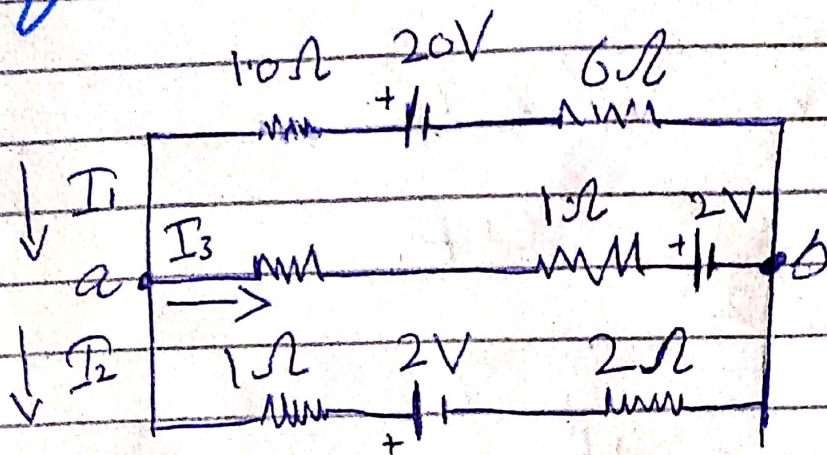 1.0Ω 20V 6Ω
+
I₁
1Ω 2V
I₃ +
a b
I₂ 1Ω 2V 2Ω
+